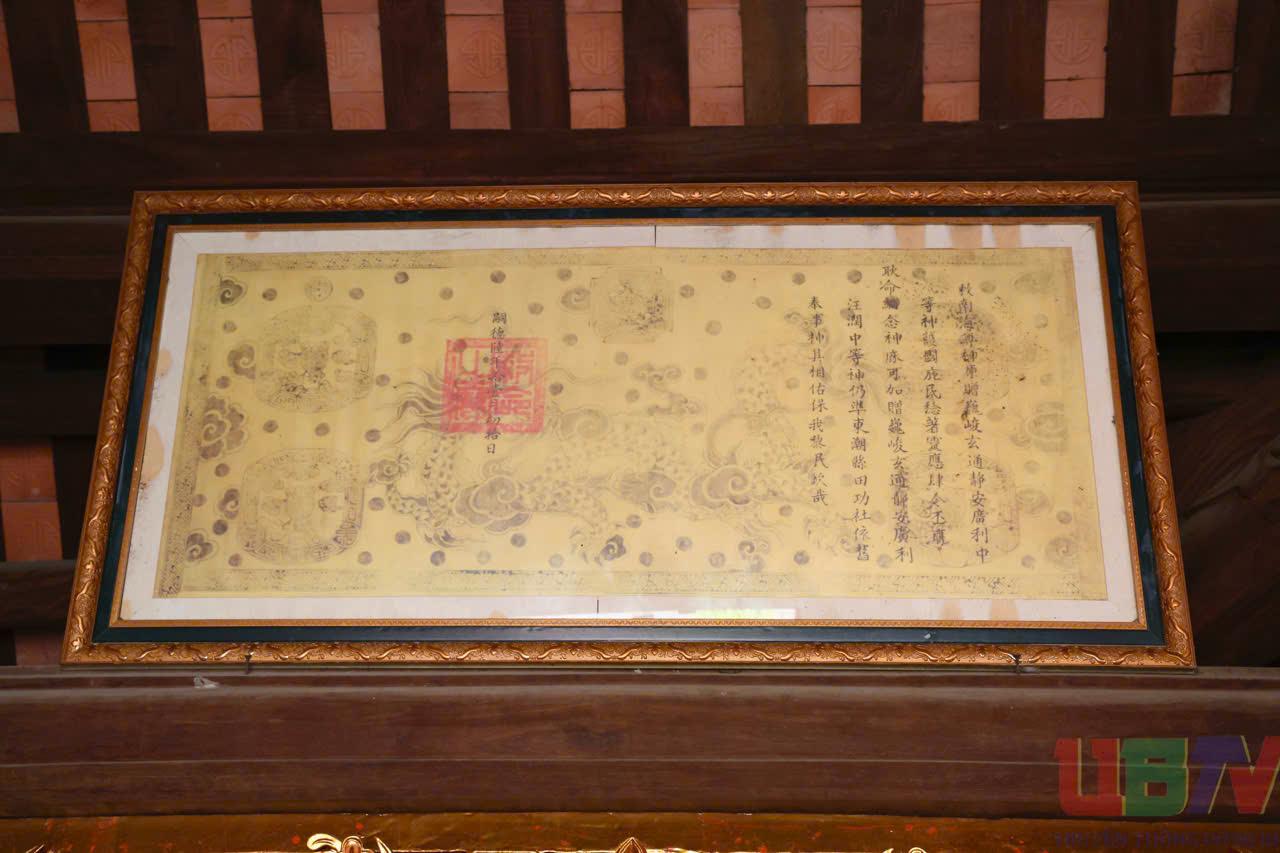 敕南海尊神原贈巍峻玄通靜安廣利中
等神護國庇民稔著靈應肆今丕膺
耿命緬念神庥可加贈巍峻玄通靜安廣利
汪潤中等神仍準東潮縣田功社依舊
奉事神其相佑保我黎民欽哉
嗣德陸年月初拾日
UBTV